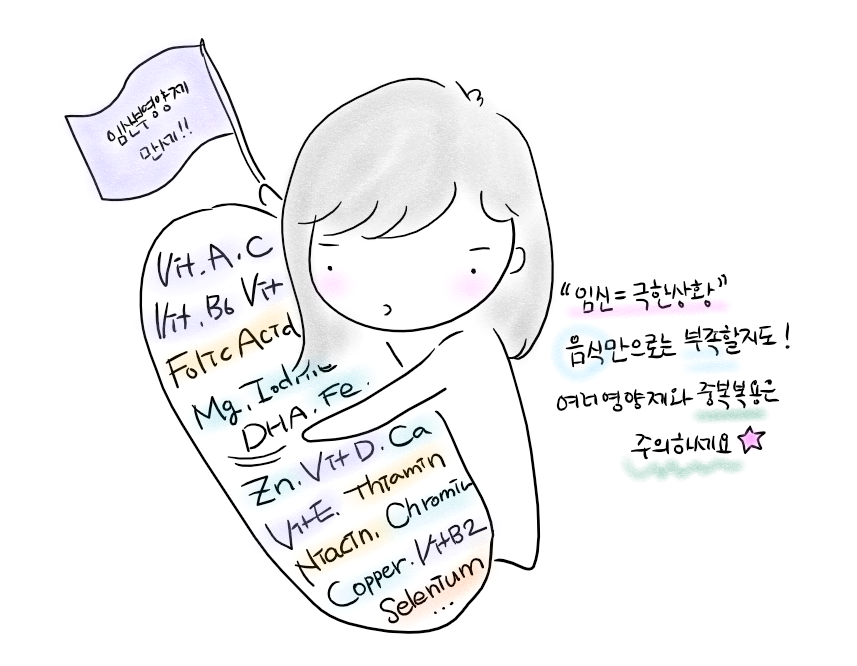 임산부영양제
만세!!
Vit. A. C
Vit. B6 Vit
Folic Acid
Mg. Iodine
DHA. Fe.
Zn. Vit D. Ca
Vit E. Thiamin
Niacin. Chromiu
Copper. Vit B2
Selenium
...
"임신 = 극한상황"
음식만으로는 부족할지도!
여러영양제와 중복복용은
주의하세요